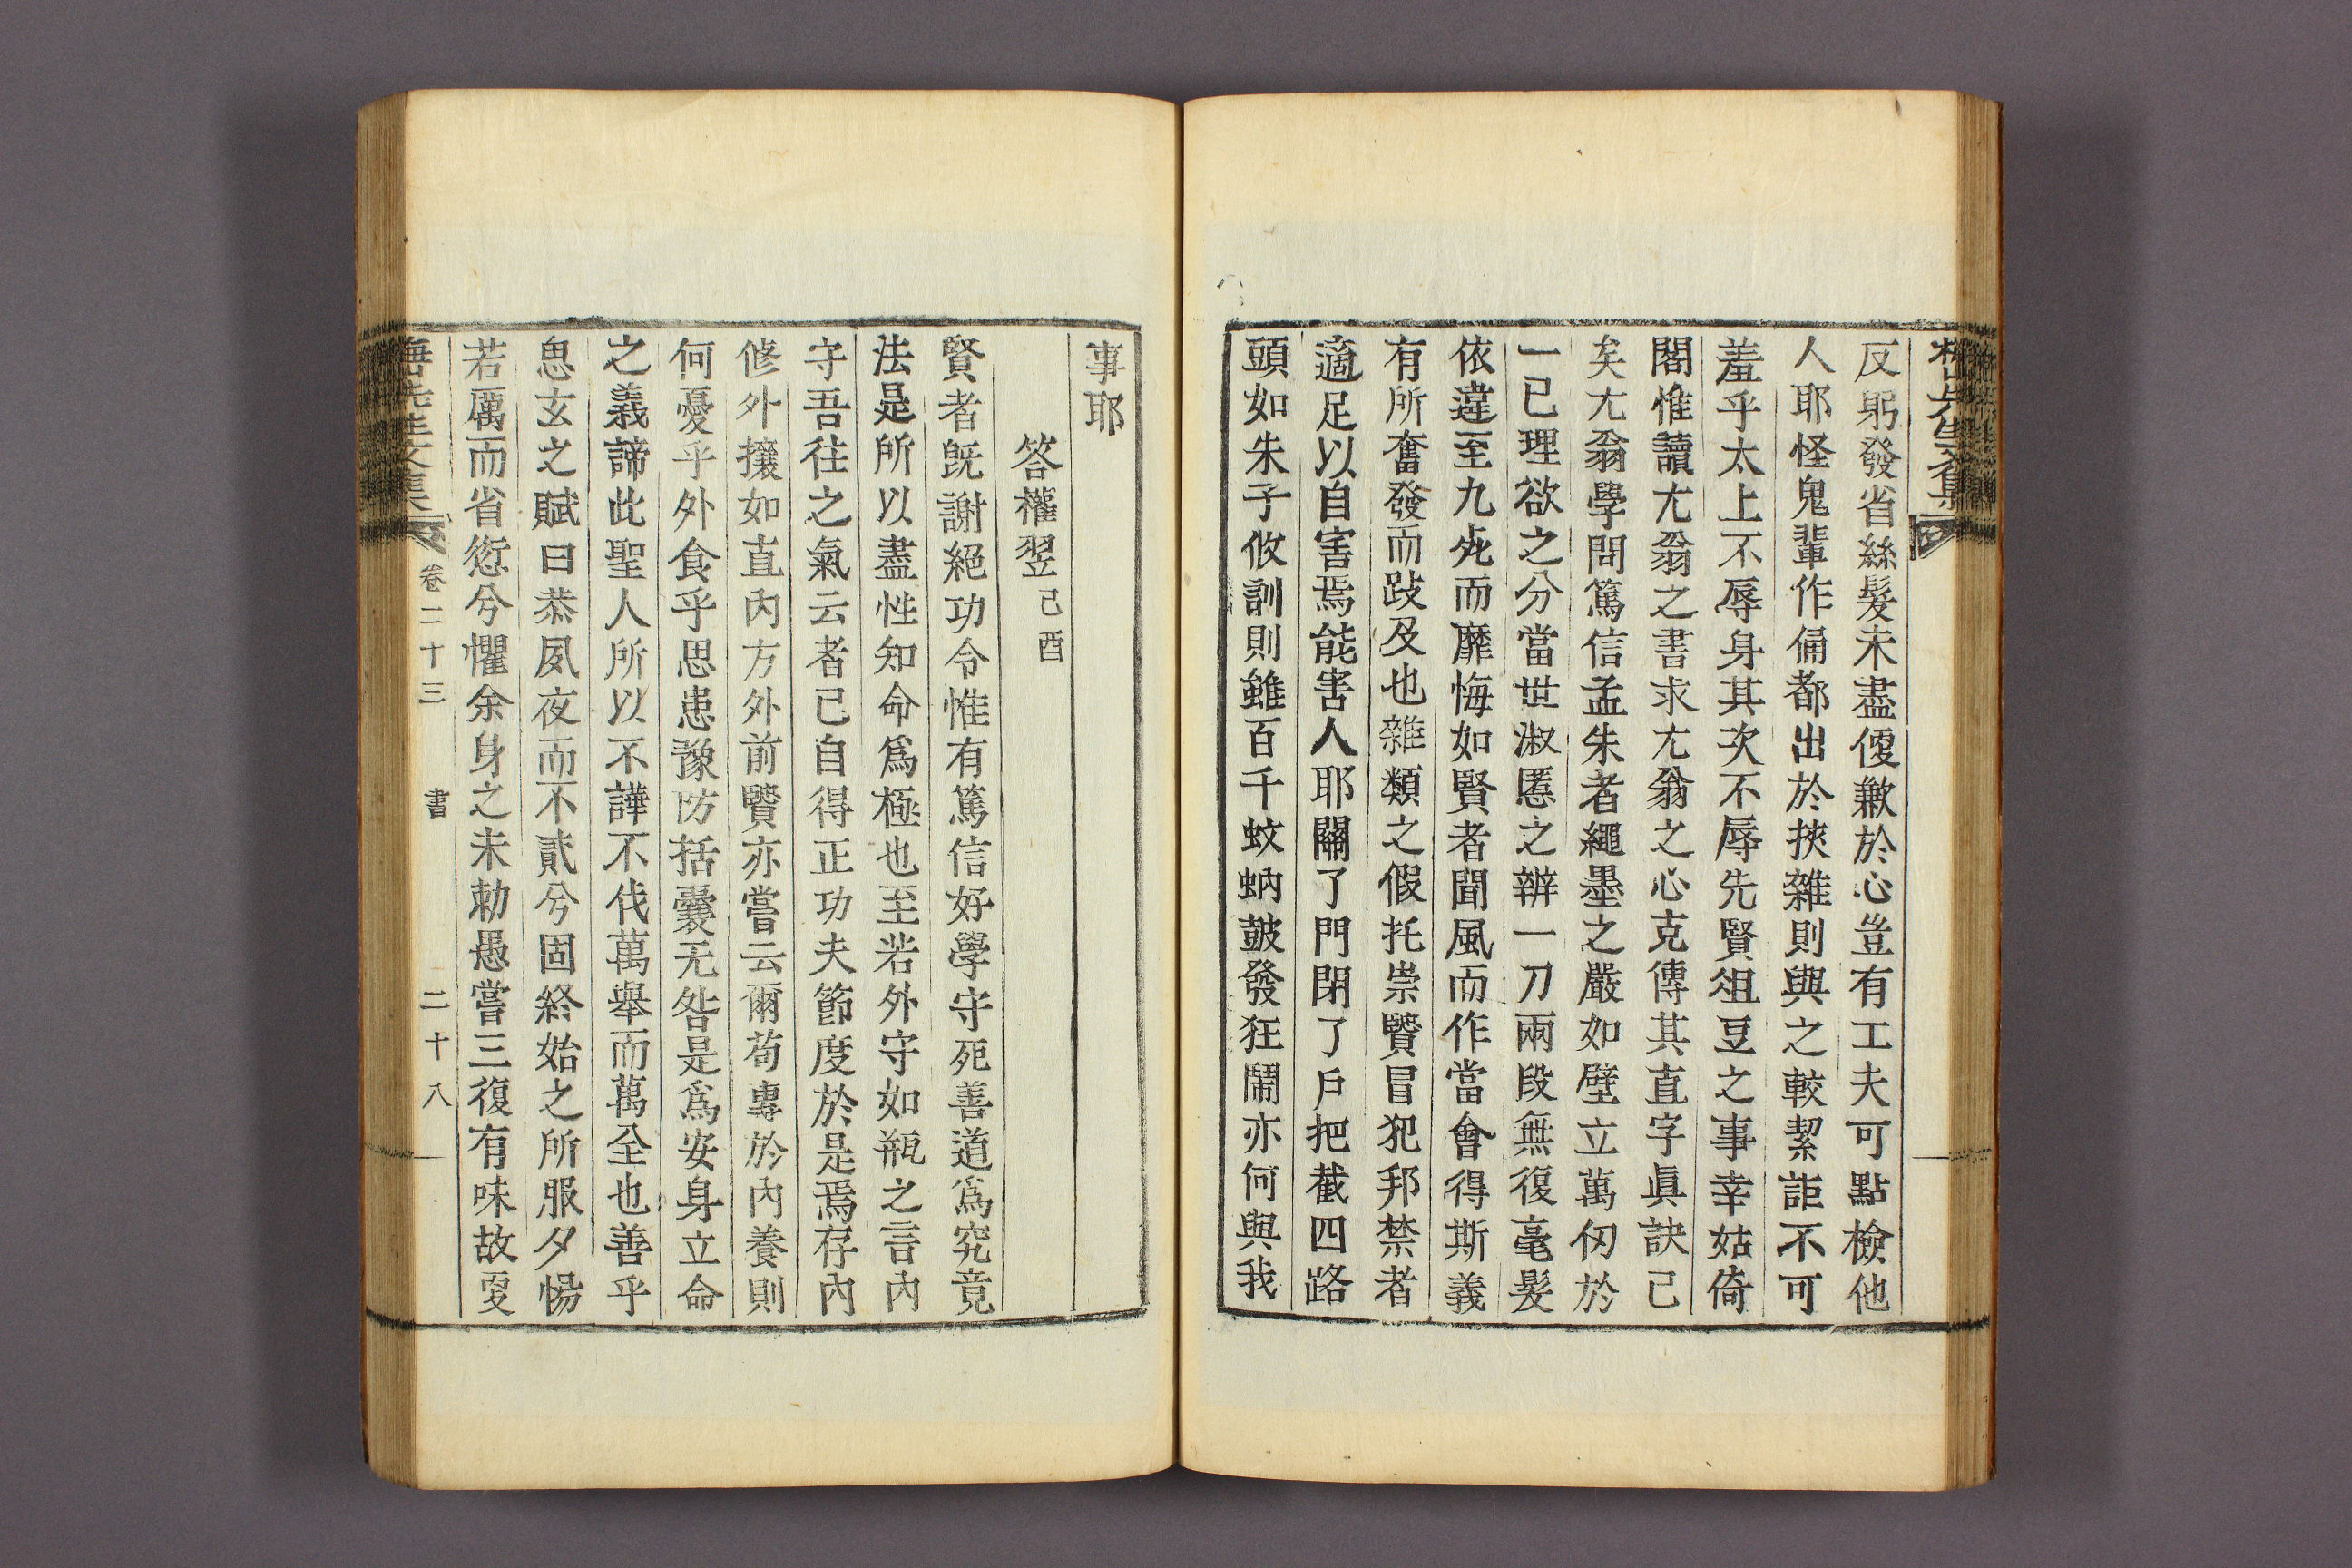 反躬發省絲髮未盡便歉於心豈有工夫可點檢他
人耶怪鬼輩作俑都出於挾雜則與之較絜詎不可
羞乎太上不辱身其次不辱先賢俎豆之事幸姑倚
閣惟讀尤翁之書求尤翁之心克傳其直字眞訣己
矣尤翁學問篤信孟朱者繩墨之嚴如壁立萬仞於
一已理欲之分當世淑慝之辨一刀兩段無復毫髮
依違至九死而靡悔如賢者聞風而作當會得斯義
有所奮發而跂及也雜類之假托崇賢冒犯邦禁者
適足以自害焉能害人耶關了門閉了戶把截四路
頭如朱子攸訓則雖百千蚊蚋鼓發狂鬧亦何與我
事耶
答權翌己酉
賢者旣謝絕功令惟有篤信好學守死善道爲究竟
法是所以盡性知命爲極也至若外守如甁之言內
守吾往之氣云者已自得正功夫節度於是焉存內
修外攘如直內方外前賢亦嘗云爾苟專於內養則
何憂乎外食乎思患豫防括囊无咎是爲安身立命
之義諦此聖人所以不譁不伐萬擧而萬全也善乎
思玄之賦曰恭夙夜而不貳兮固終始之所服夕惕
若厲而省愆兮懼余身之未勅愚嘗三復有味故更
先生文集 卷二十三 書 二十八